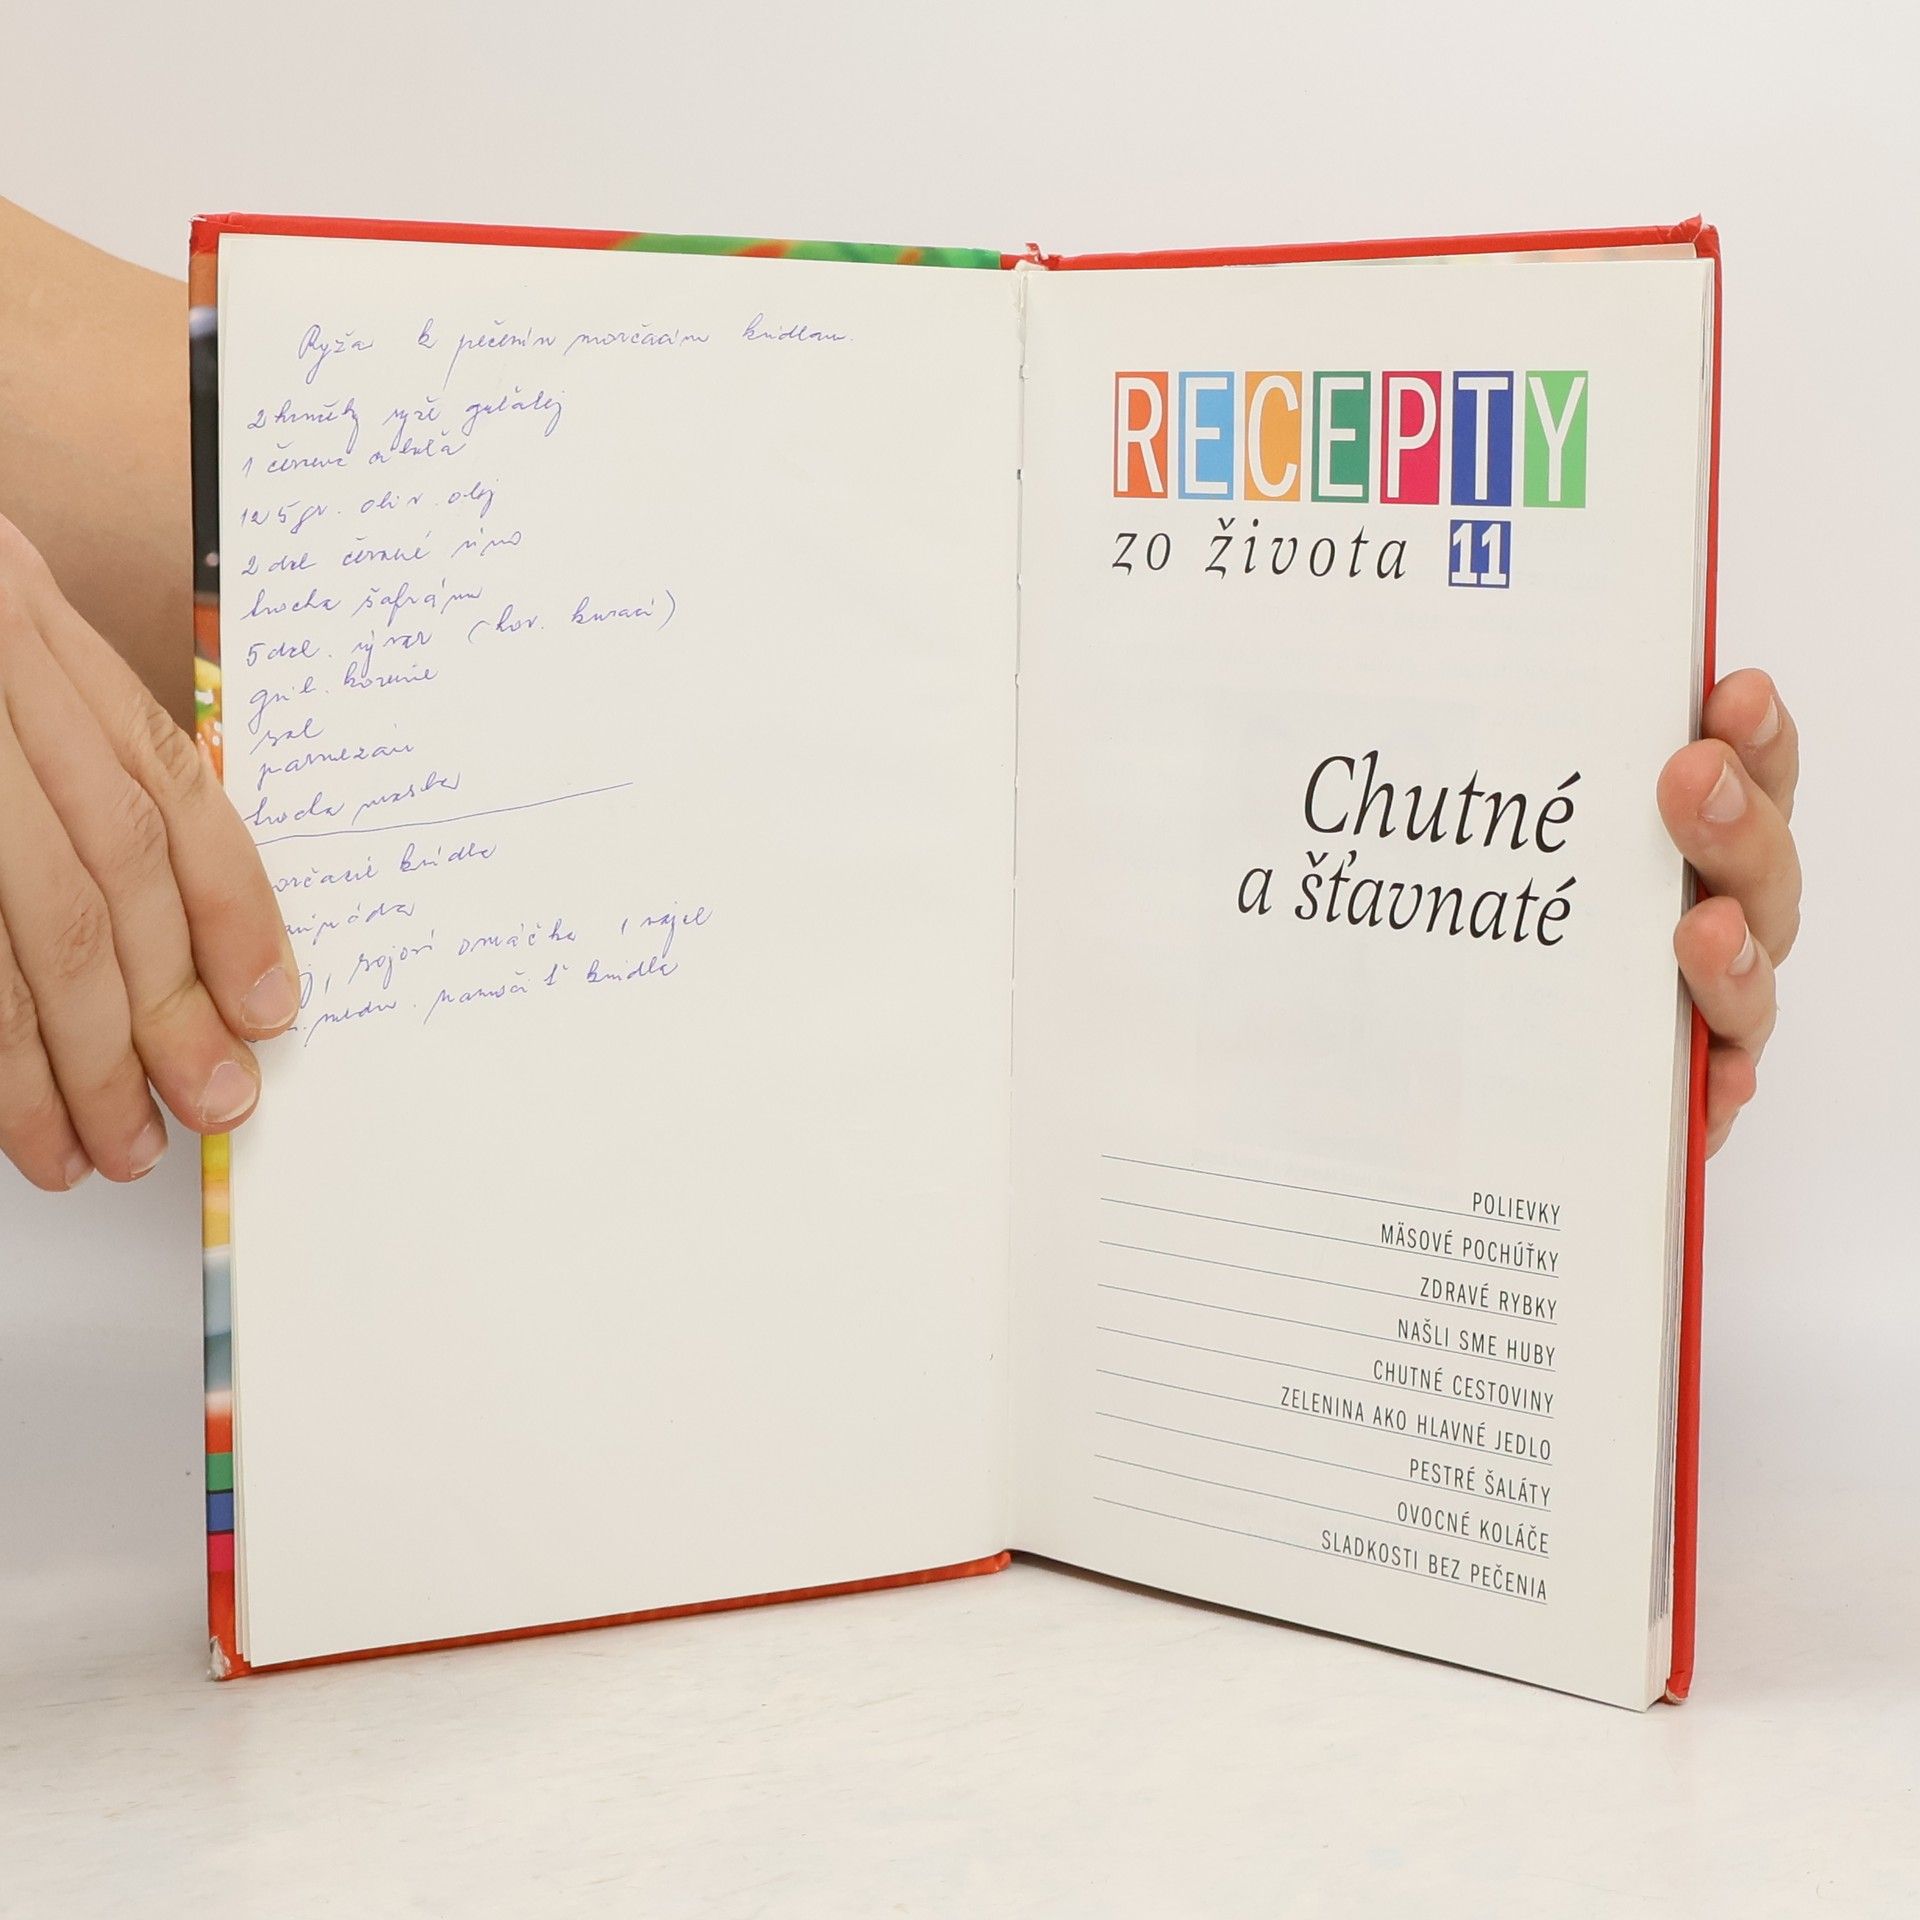 Ryža k pečením morčacím krídlam.
2 hrnčeky ryže guľatej
1 červená cibuľa
125 gr. oliv. olej
2 del červené víno
trocha šafránu
5 del. vývar (hov. kurací)
gril. korenie
sol
parmezán
trocha masla
krídla
sojová omáčka
medu. krídla
RECEPTY
zo života 11
Chutné
a šťavnaté
POLIEVKY
MÄSOVÉ POCHÚŤKY
ZDRAVÉ RYBKY
NAŠLI SME HUBY
CHUTNÉ CESTOVINY
ZELENINA AKO HLAVNÉ JEDLO
PESTRÉ ŠALÁTY
OVOCNÉ KOLÁČE
SLADKOSTI BEZ PEČENIA